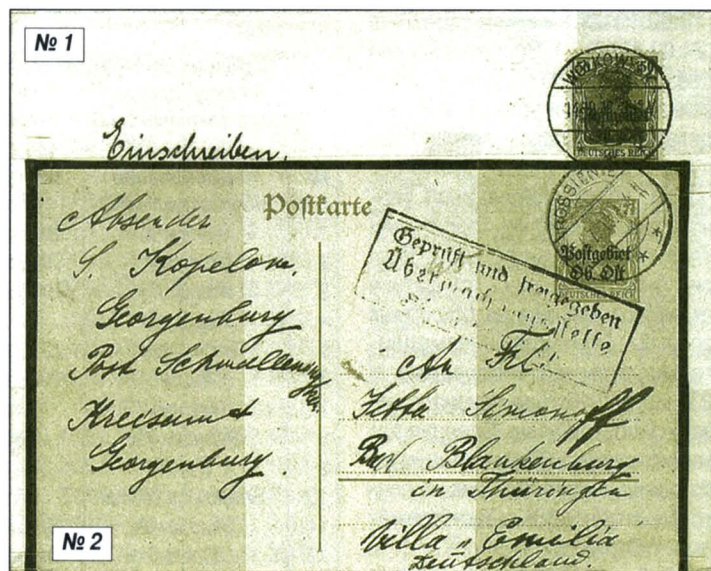 № 1
WOLKOWYSK
DEUTSCHES REICH
Einschreiben.
Postkarte
ROSSIENIE
7½
Postgebiet
Ob. Ost
DEUTSCHES REICH
Geprüft und freigegeben
Überwachungsstelle
Absender
S. Kopelow.
Georgenburg
Post Schmalleningken
Kreisamt
Georgenburg.
An Frl.
Jetta Simonoff
Bad Blankenburg
in Thüringen
Villa „Emilia
Deutschland.
№ 2